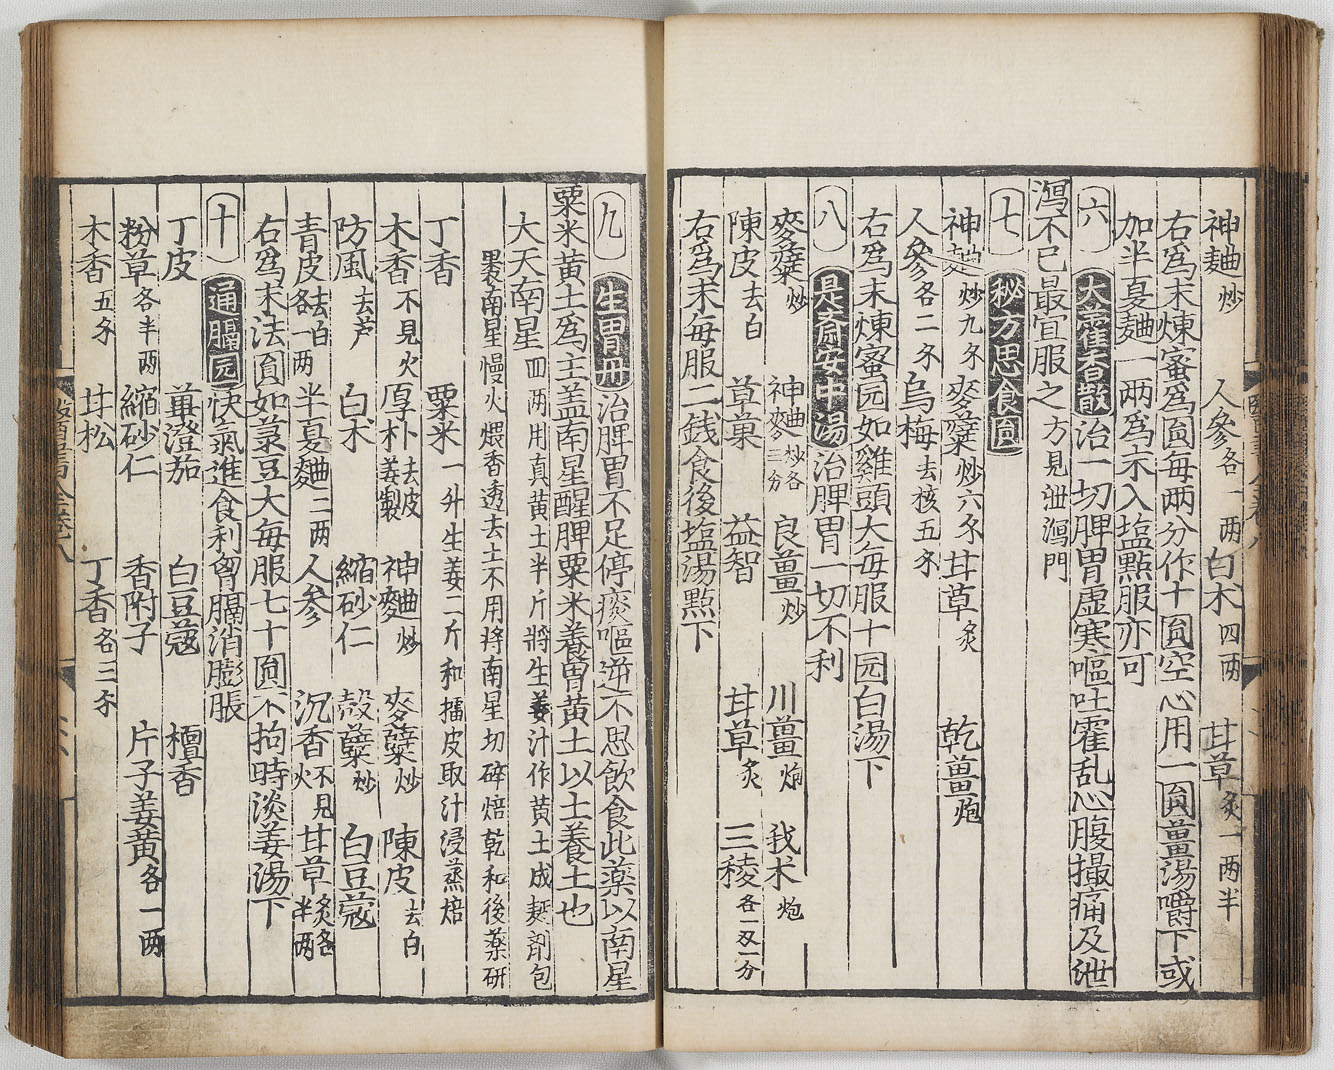 神麯炒 人參各一两 白朮四两 甘草炙一两半
右爲末煉蜜爲圎每两分作十圎空心用一圎薑湯嚼下或
加半夏麯一两爲末入塩點服亦可
六 大藿香散 治一切脾胃虚寒嘔吐霍乱心腹撮痛及泄
瀉不已最宜服之 方見泄瀉門
七 秘方思食圎
神麯炒九欠 麥蘖炒六欠 甘草炙 乾薑炮
人參各二欠 烏梅去核五欠
右爲末煉蜜圎如雞頭大每服十圎白湯下
八 是齋安中湯 治脾胃一切不利
麥蘖炒 神麯炒各三分 良薑炒 川薑炮 我朮炮
陳皮去白 草菓 益智 甘草炙 三稜各一双一分
右爲末每服二銭食後塩湯點下
九 生胃丹 治脾胃不足停痰嘔逆不思飲食此薬以南星
粟米黄土爲主盖南星醒脾粟米養胃黄土以土養土也
大天南星四两用真黄土半斤將生姜汁作黄土成麪劑包
褁南星慢火煨香透去土不用將南星切碎焙乾和後薬研
丁香 粟米一升生姜二斤和擂皮取汁浸蒸焙
木香不見火 厚朴去皮姜製 神麯炒 麥蘖炒 陳皮去白
防風去芦 白朮 縮砂仁 殻蘖炒 白豆蔻
青皮去白各一两 半夏麯二两 人參 沉香不見火 甘草炙各半两
右爲末法圎如菉豆大每服七十圎不拘時淡姜湯下
十 通膈圎 快氣進食利胷膈消膨脹
丁皮 蓽澄茄 白豆蔻 檀香
粉草各半两 縮砂仁 香附子 片子姜黄各一两
木香五欠 甘松 丁香各三欠